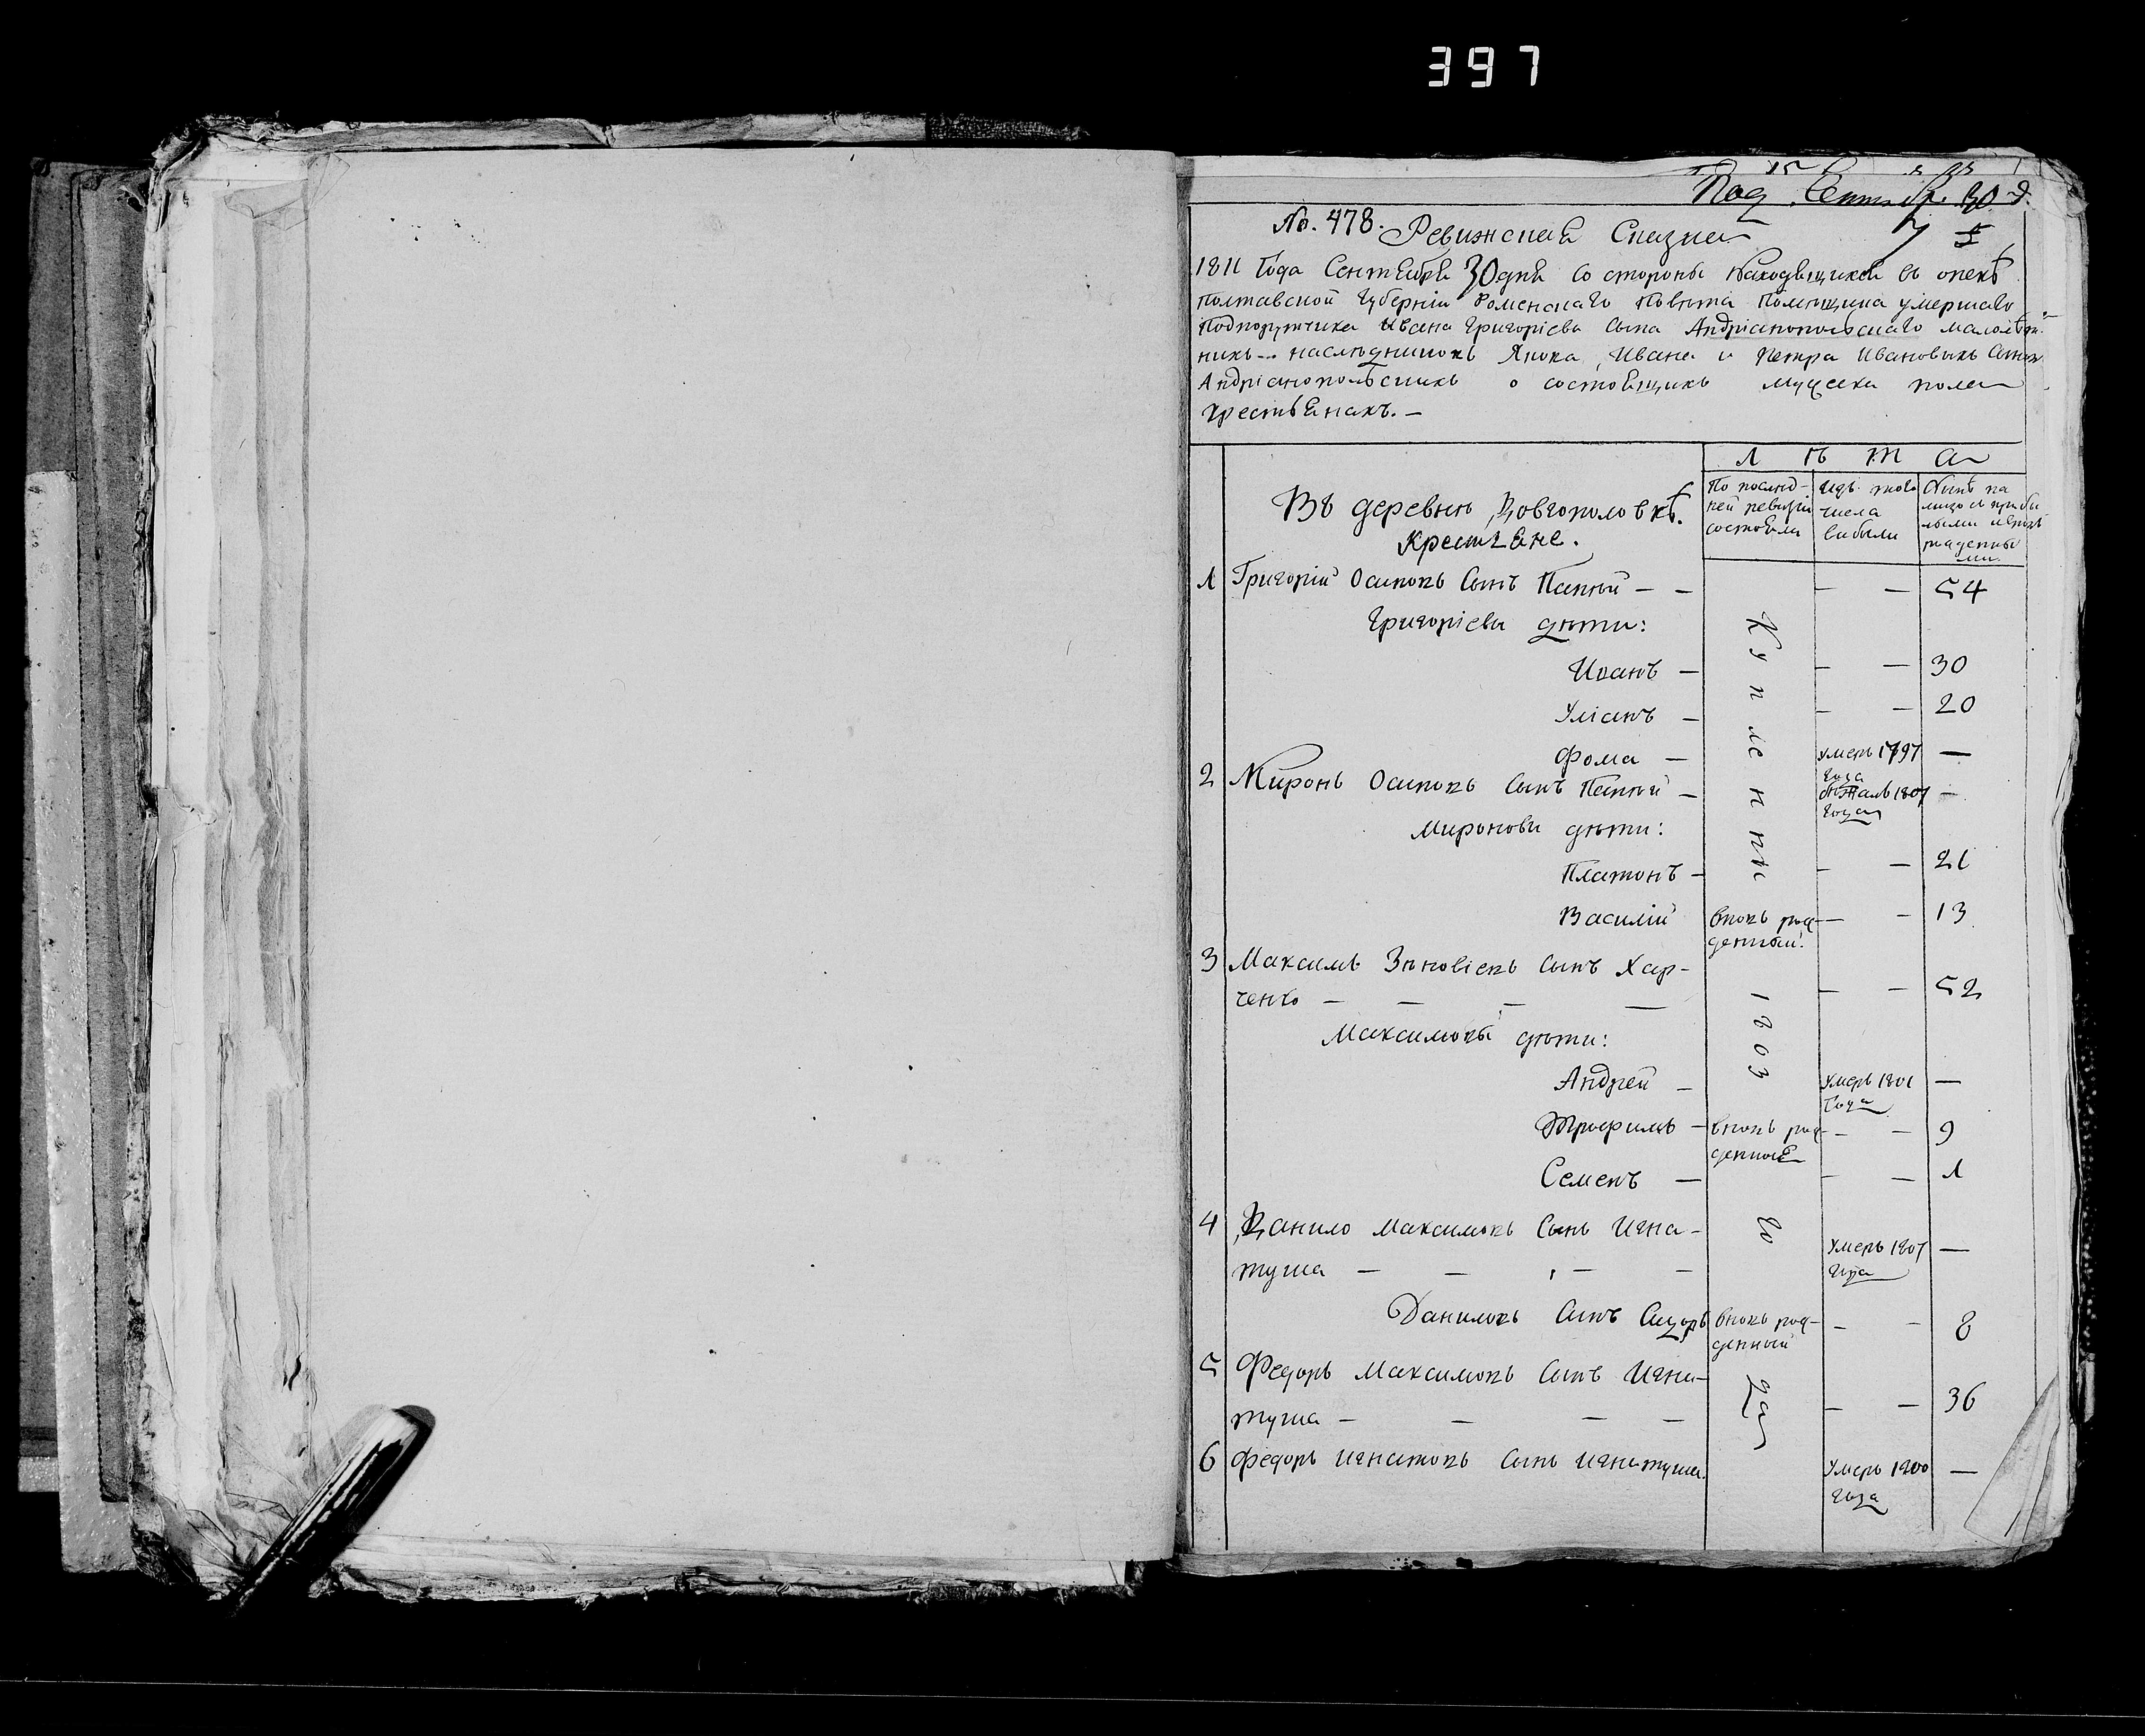 397
Под. Сентябр. 30 д.
No. 478. Ревижская Сказка
1811 Года Сентября 30 дня со стороны находящихся въ опекѣ
Полтавской Губерніи Роменскаго Повѣта Помѣщика умершаго
Подпорутчика Ивана Григоріева сына Андріанопольскаго малолѣт-
нихъ наслѣдниковъ Якова, Ивана и Петра Ивановыхъ
Андріанопольскихъ о состоящихъ мужеска пола
крестьянахъ. —
Л ѣ т а
Въ деревнѣ Довгополовкѣ.
Крестьяне.
По послѣд-
ней ревизіи
состояли
Изъ того
числа
выбыли
Нынѣ на
лицо съ прибы
лыми и вновь
рожденны
ми.
1 Григорій Осиповъ Сынъ Папкой — — — — 54
Григоріеви дѣти:
Иванъ — — — 30
Уліанъ — — — 20
Фома — умеръ 1797 —
года
2 Миронъ Осиповъ Сынъ Папкой — бѣжалъ 1807 —
года
Миронови дѣти:
Платонъ — — — 21
Василій вновь рож- — — 13
денный.
3 Максимъ Зѣновіевъ сынъ Хар-
ченко — — — — — — 52
Максимовы дѣти:
Андрей — умеръ 1801 —
года
Трофимъ — вновь рож- — — 9
денные
Семенъ — — — 1
4 Данило Максимовъ Сынъ Игна-
туша — — — — умеръ 1807 —
года
Даниловъ Сынъ Сидоръ вновь рож- — — 8
денный
5 Федоръ Максимовъ Сынъ Игна-
туша — — — — — — 36
6 Федоръ Игнатовъ Сынъ Игнатуша. умеръ 1800 —
года
Купленны
1803
го
да